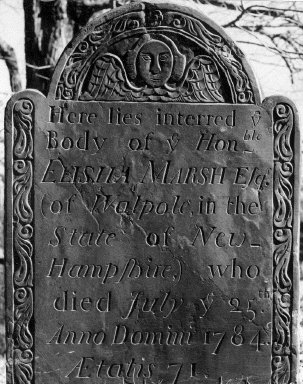 Here lies interred yͤ
Body of yͤ Honᵇˡᵉ
ELISHA MARSH Esqͬ.
(of Walpole, in the
State of New-
Hampſhire,) who
died July yͤ 25.ᵗʰ
Anno Domini 1784.
Ætatis 71.